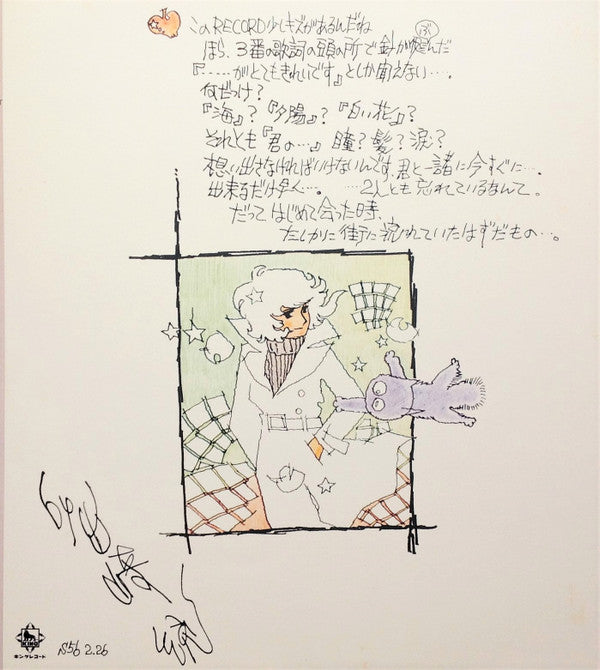 このRECORD少しキズがあるんだね
ほら、3番の歌詞の頭の所で針が飛んだ
ぶ
『……がとてもきれいです』としか聞えない…。
何だっけ?
『海』? 『夕陽』? 『白い花』?
それとも『君の…』 瞳? 髪? 涙?
想い出さなければいけないんです、君と一諸に今すぐに…。
出来るだけ早く…。 …2人とも忘れているなんて。
だって はじめて会った時、
たしかに街に流れていたはずだもの…。
KING
キングレコード
S56 2.26